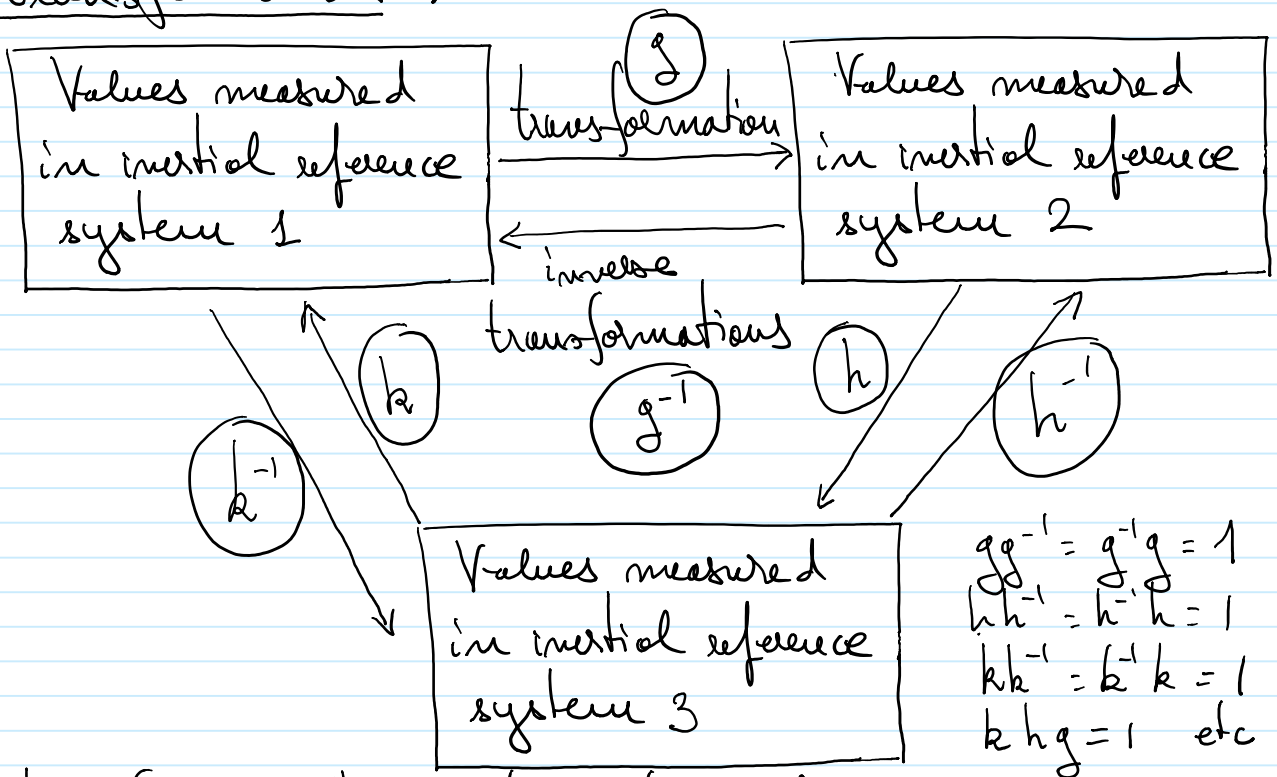 Values measured
in inertial reference
system 1
g
transformation
inverse
transformations
g⁻¹
Values measured
in inertial reference
system 2
k
k⁻¹
h
h⁻¹
Values measured
in inertial reference
system 3
gg⁻¹ = g⁻¹g = 1
hh⁻¹ = h⁻¹h = 1
kk⁻¹ = k⁻¹k = 1
khg = 1 etc